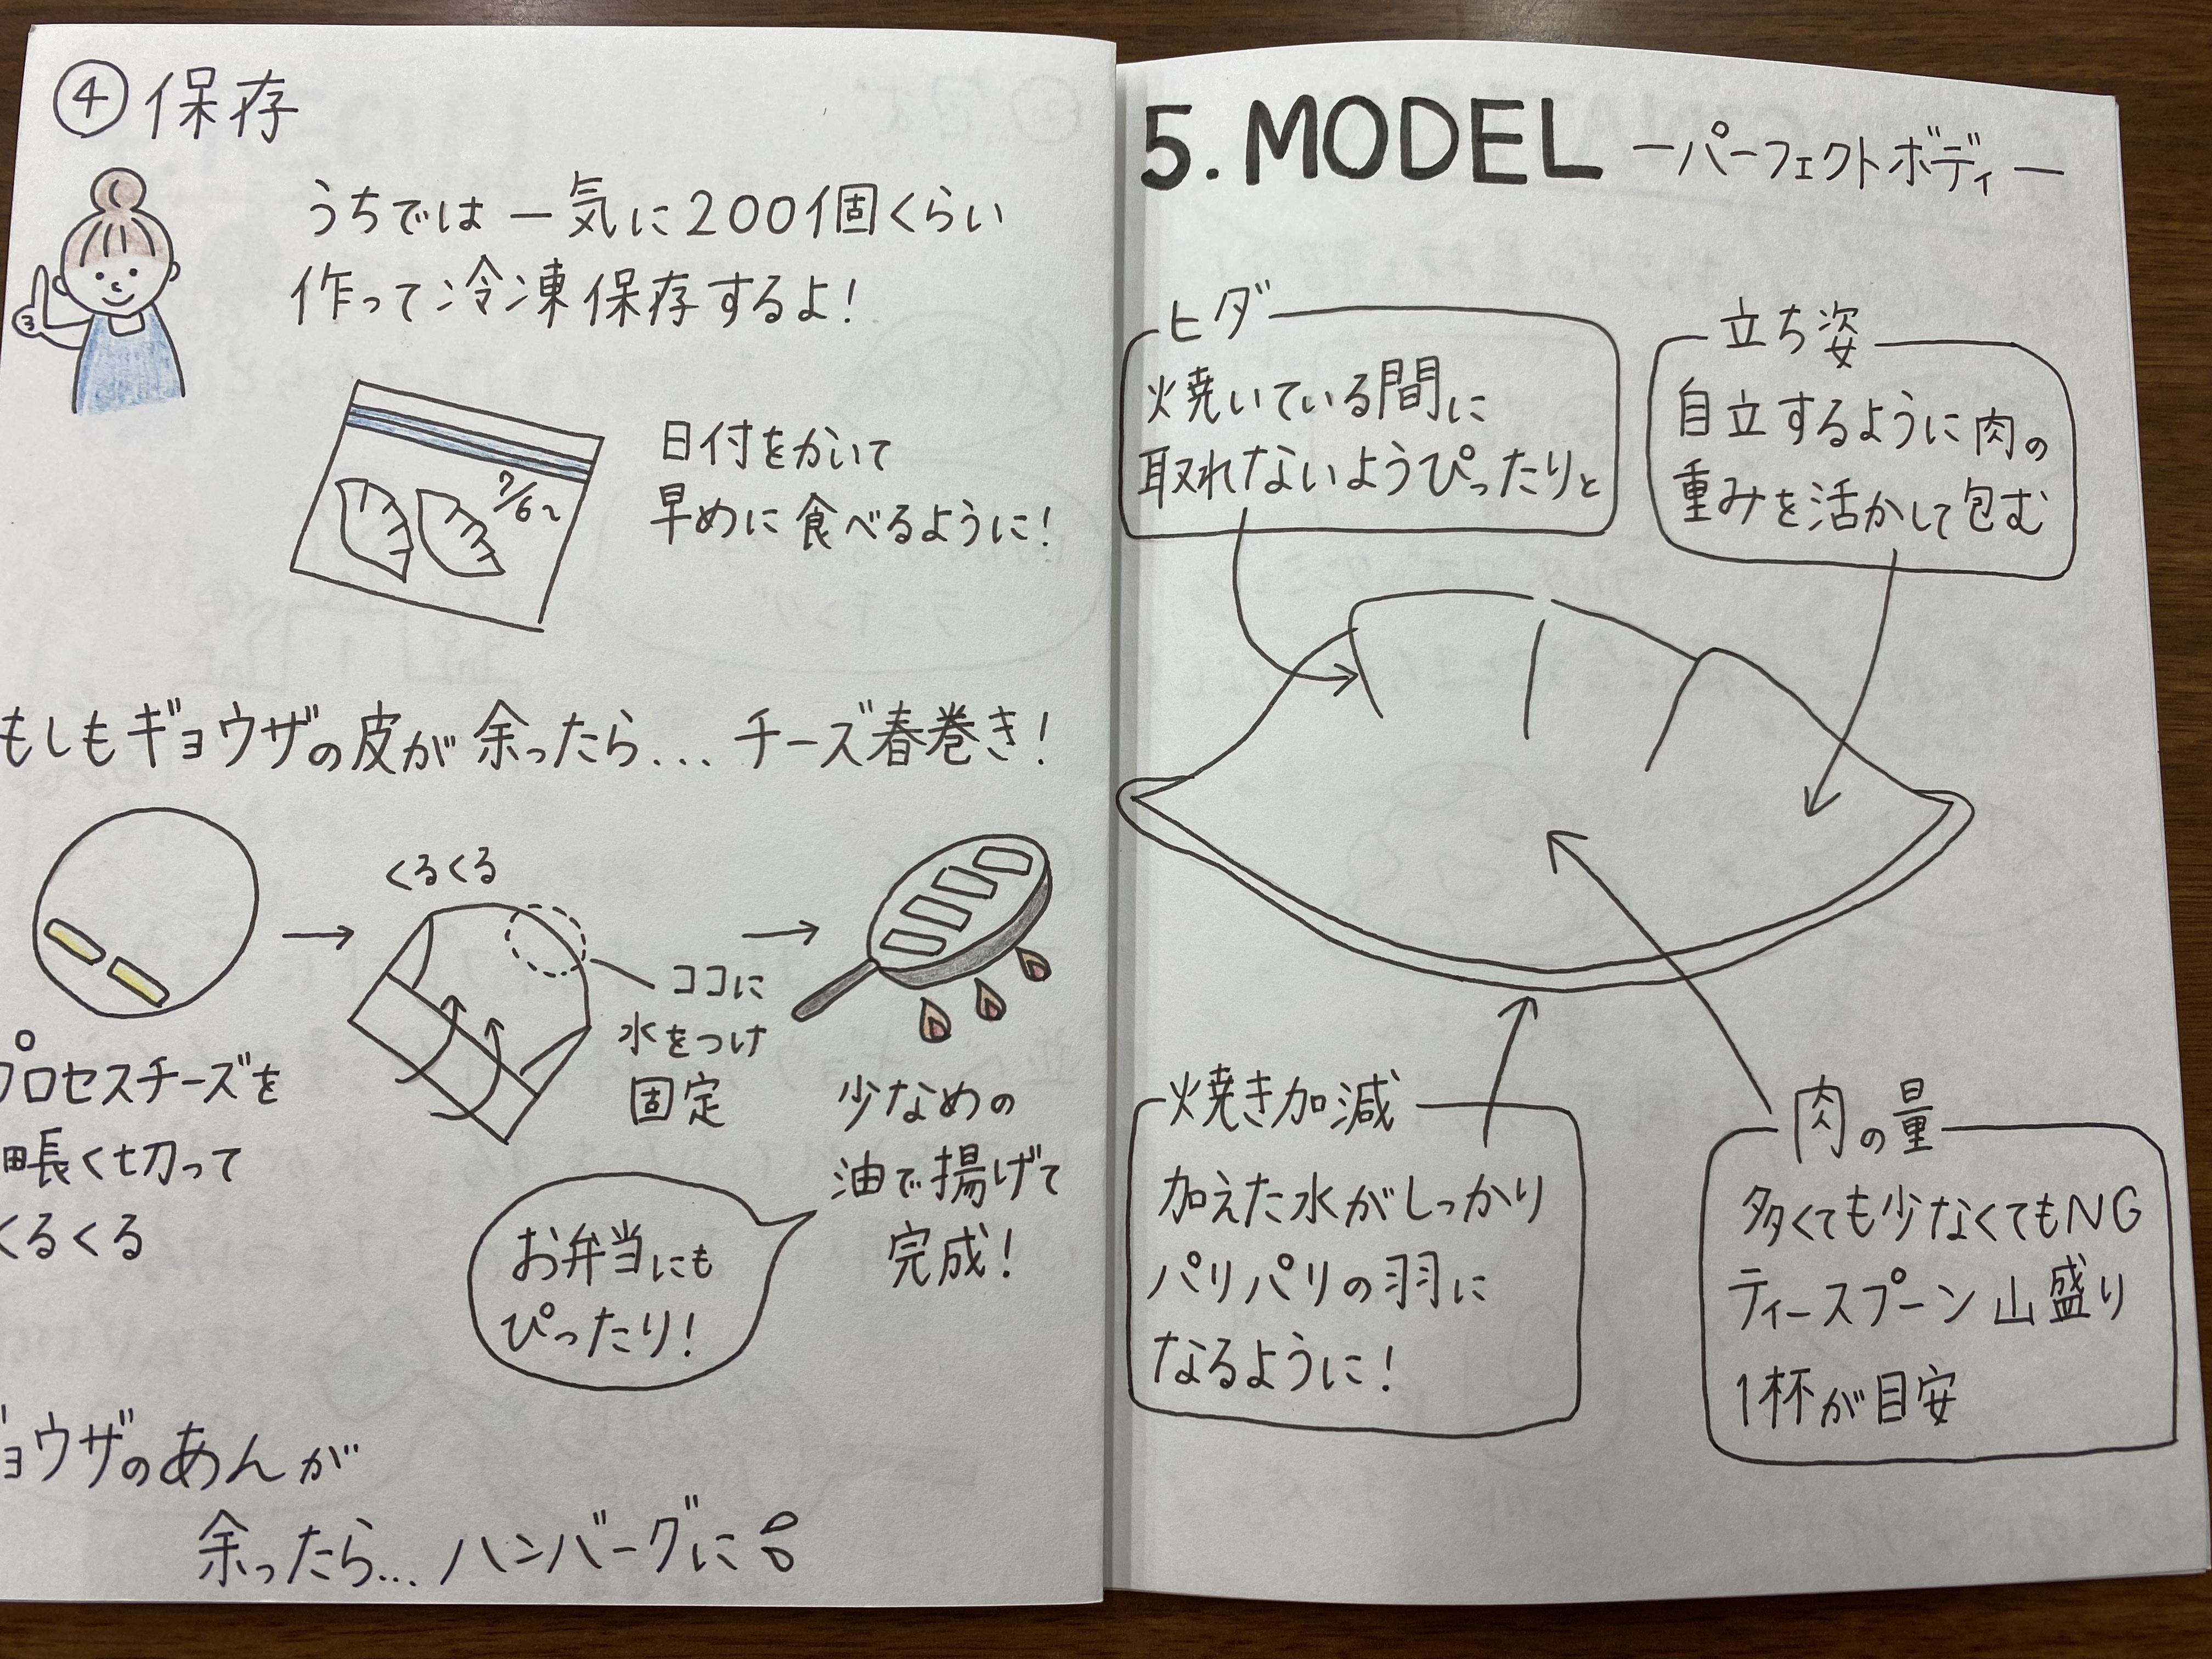 ④保存
うちでは一気に200個くらい
作って冷凍保存するよ!
日付をかいて
早めに食べるように!
もしもギョウザの皮が余ったら... チーズ春巻き!
プロセスチーズを
長く切って
くるくる
くるくる
ココに
水をつけ
固定
少なめの
油で揚げて
完成!
お弁当にも
ぴったり!
ョウザのあんが
余ったら... ハンバーグに
5.MODEL ーパーフェクトボディー
ヒダ
焼いている間に
取れないようぴったりと
立ち姿
自立するように肉の
重みを活かして包む
焼き加減
加えた水がしっかり
パリパリの羽に
なるように!
肉の量
多くても少なくてもNG
ティースプーン山盛り
1杯が目安